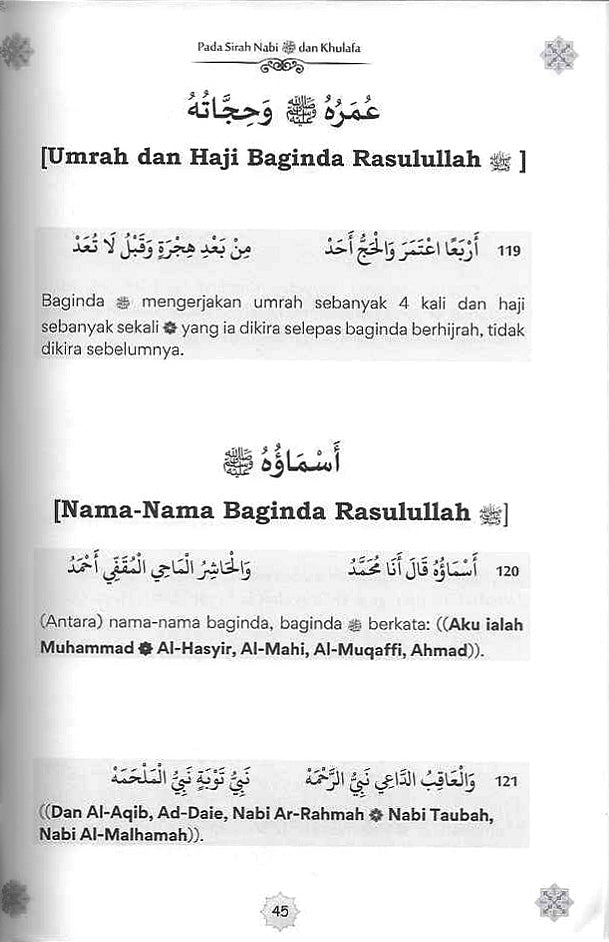 Pada Sirah Nabi ﷺ dan Khulafa
عُمَرُهُ ﷺ وَحِجَّاتُهُ
[Umrah dan Haji Baginda Rasulullah ﷺ ]
119 أَرْبَعًا اعْتَمَرَ وَالْحَجُّ أَحَدْ مِنْ بَعْدِ هِجْرَةٍ وَقَبْلُ لَا تُعَدْ
Baginda ﷺ mengerjakan umrah sebanyak 4 kali dan haji
sebanyak sekali ❁ yang ia dikira selepas baginda berhijrah, tidak
dikira sebelumnya.
أَسْمَاؤُهُ ﷺ
[Nama-Nama Baginda Rasulullah ﷺ]
120 أَسْمَاؤُهُ قَالَ أَنَا مُحَمَّدُ وَالْحَاشِرُ الْمَاحِي الْمُقَفِّي أَحْمَدُ
(Antara) nama-nama baginda, baginda ﷺ berkata: ((Aku ialah
Muhammad ❁ Al-Hasyir, Al-Mahi, Al-Muqaffi, Ahmad)).
121 وَالْعَاقِبُ الدَّاعِي نَبِيُّ الرَّحْمَهْ نَبِيُّ تَوْبَةٍ نَبِيُّ الْمَلْحَمَهْ
((Dan Al-Aqib, Ad-Daie, Nabi Ar-Rahmah ❁ Nabi Taubah,
Nabi Al-Malhamah)).
45